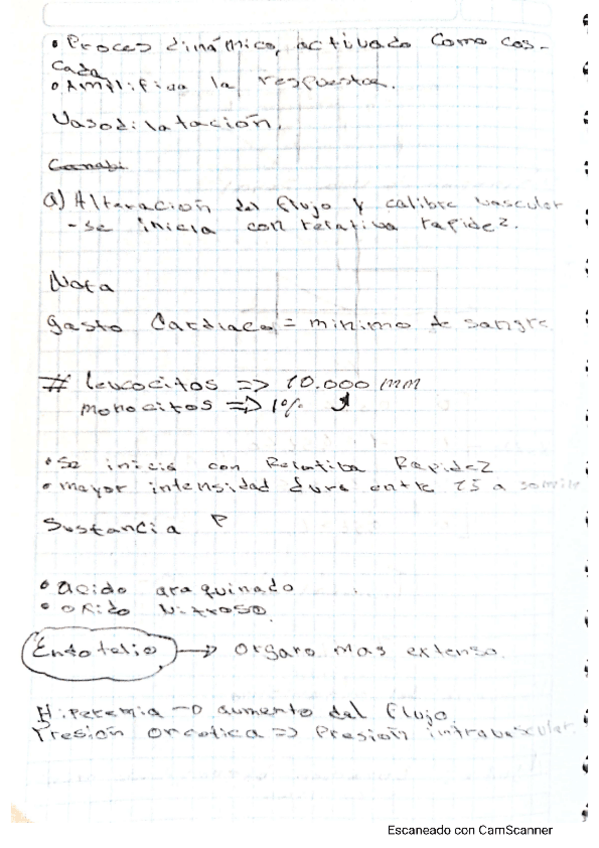 • Proceso dinámico, activado como cas-
cada
• Amplifica la respuesta.
Vasodilatación.
a) Alteración del flujo y calibre vascular
- se inicia con relativa rapidez.
Nota
gasto Cardiaco = minimo de sangre
# leucocitos => 10.000 mm
monocitos => 1%
• se inicia con Relativa Rapidez
• mayor intensidad dura entre 15 a
Sustancia P
• acido araquinado
• oxido Nitroso
Endotelio → organo mas extenso.
Hiperemia → aumento del flujo
Presión oncotica => Presion intravascular.
Escaneado con CamScanner